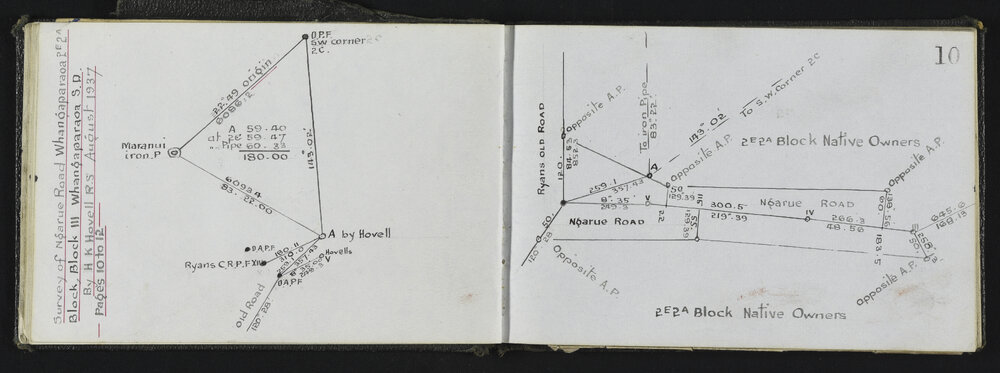 Survey of Ngarue Road Whangaparaoa 2E2A
Block, Block III Whangaparaoa S.D.
By H K Hovell R.S August 1937
Pages 10 to 12
O.P.F
SW corner 2C
2C.
22°49 origin
8086.2
Maranui
iron.P
A 59.40
at 2E 59.47
" Pipe 60.33
180.00
60934
83.22.00
A by Hovell
O.A.P.F
Ryans C.R.P.F XIV
O.A.P.F
Hovells
V
Old Road
120°28'
10
Ryans Old Road
120.
84.53
258
Opposite A.P.
To iron Pipe
83°22'
143°02'
To S.W. Corner 2C
2E2A Block Native Owners
A
Opposite A.P.
Opposite A.P.
259.1
357.43
8°35'
249.3
V
50
129.39
22
III
55
129.39
300.5
219°39
Ngarue Road
Ngarue Road
IV
266.3
48.56
60.0
138.56
183.5
645.6
168.13
50.
120°28
Opposite A.P.
Opposite A.P.
2E2A Block Native Owners